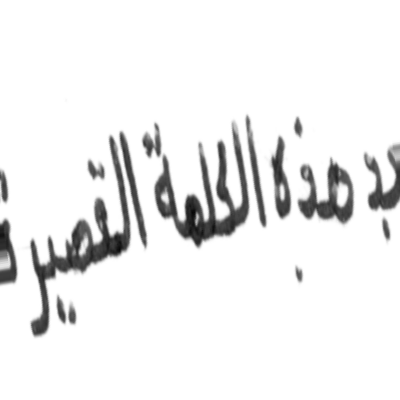 بعد هذه الكلمة القصيرة